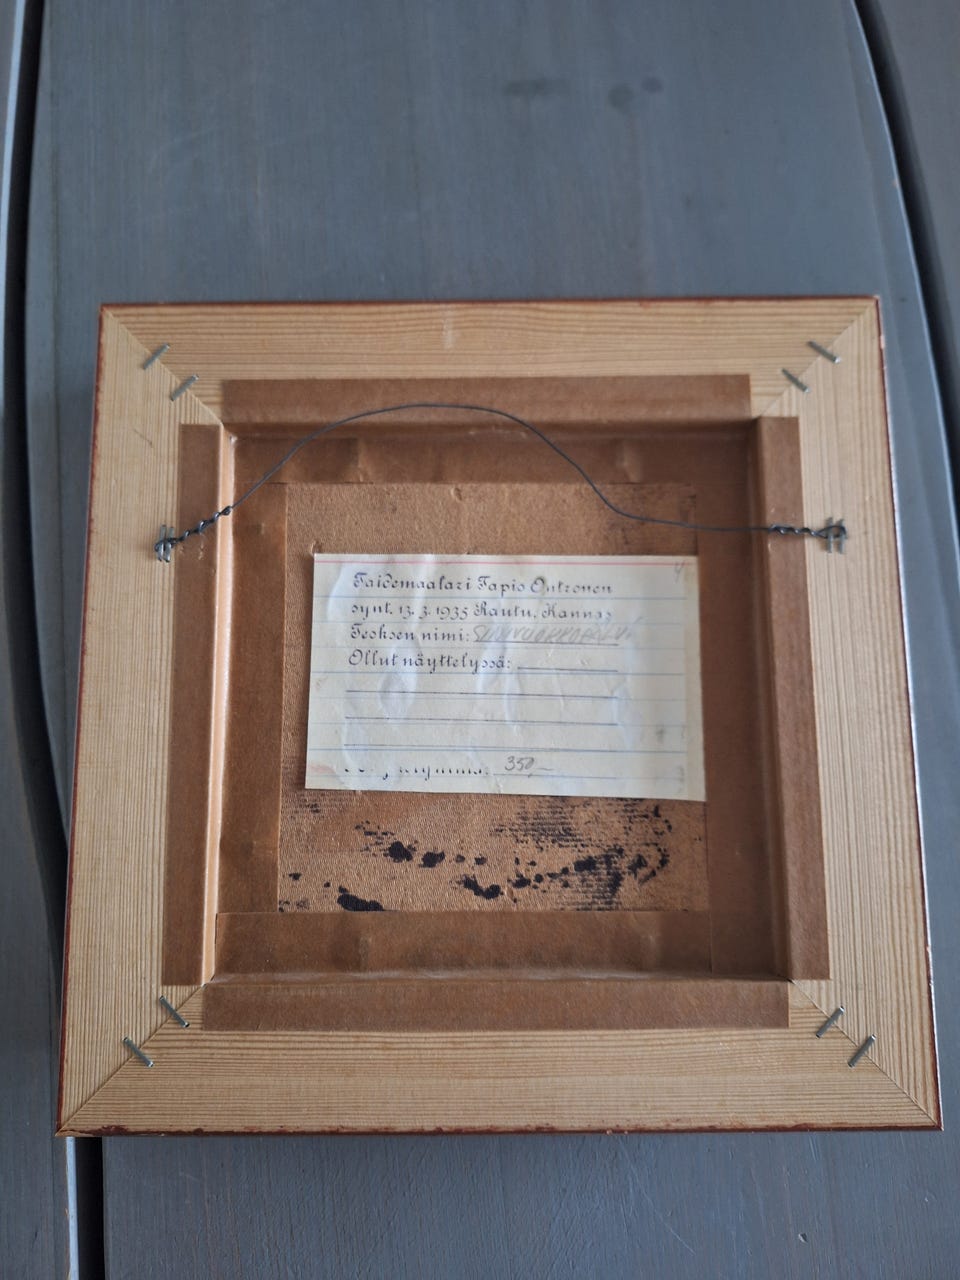 4
Taidemaalari Tapio Ontronen
synt. 13. 3. 1935 Rautu, Kannas
Teoksen nimi:
Ollut näyttelyssä:
350,-